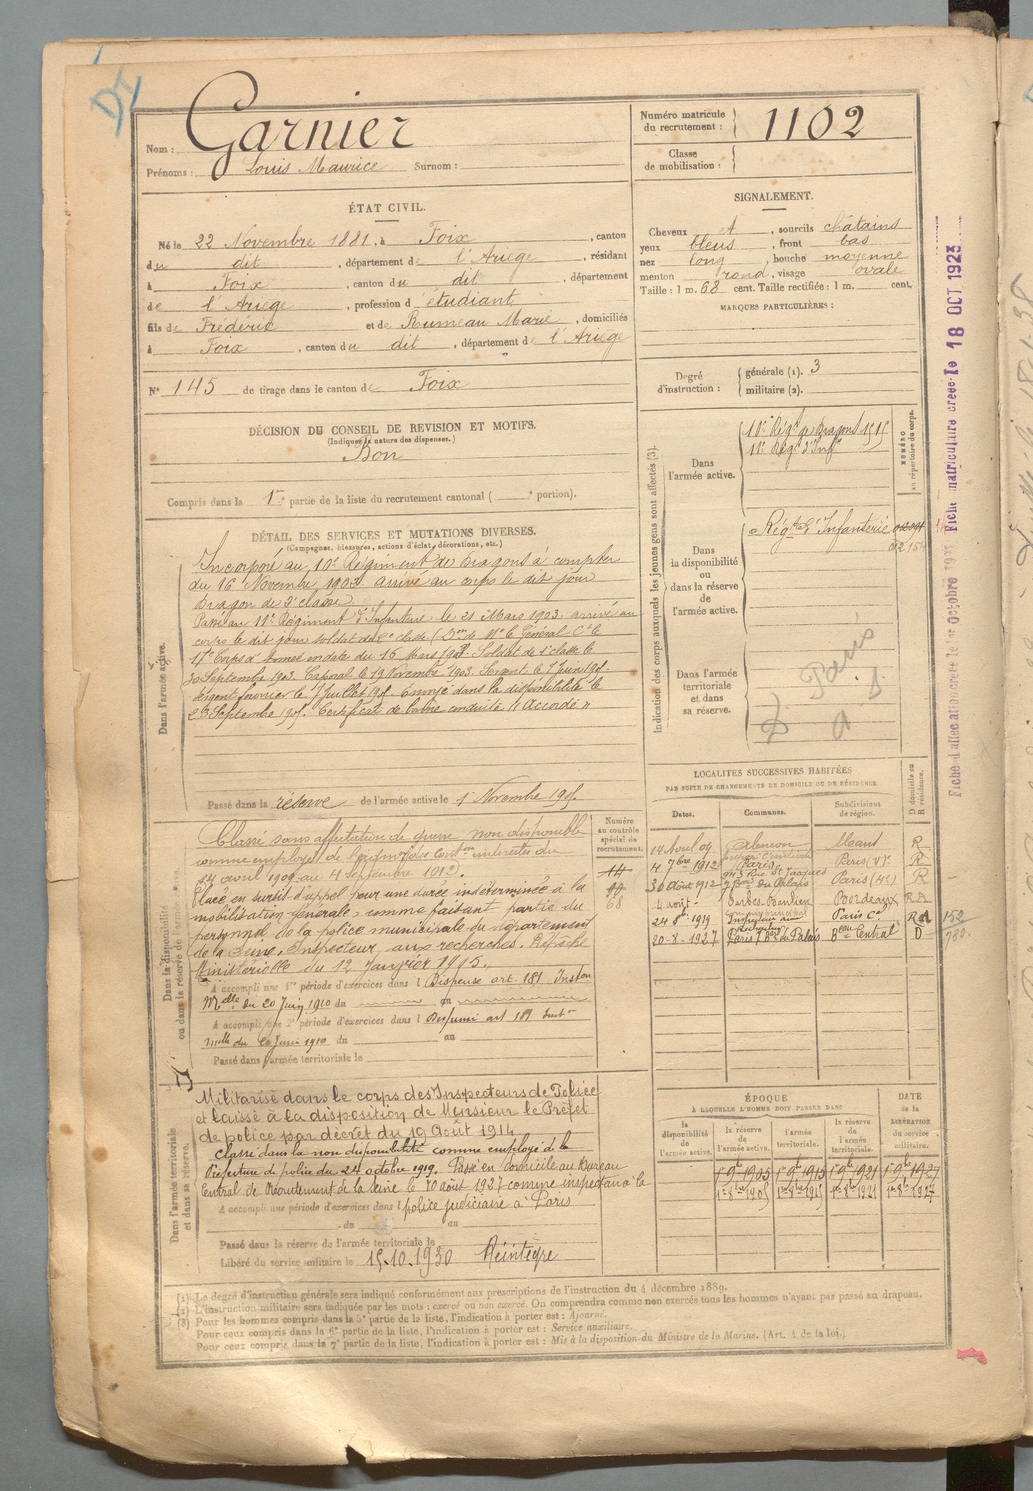 Nom : Garnier
Prénoms : Louis Maurice Surnom :
Numéro matricule du recrutement : 1102
Classe de mobilisation :
ÉTAT CIVIL.
Né le 22 Novembre 1881, à Foix, canton
du dit, département de l'Ariège, résidant
à Foix, canton du dit, département
de l'Ariège, profession d'étudiant
fils de Frédéric et de Rumeau Marie, domiciliés
à Foix, canton du dit, département de l'Ariège
N° 145 de tirage dans le canton de Foix
SIGNALEMENT.
Cheveux, sourcils châtains
yeux bleus, front bas
nez long, bouche moyenne
menton rond, visage ovale
Taille : 1 m. 68 cent. Taille rectifiée : 1 m. cent.
MARQUES PARTICULIÈRES :
Degré d'instruction : générale (1). 3
militaire (2).
DÉCISION DU CONSEIL DE REVISION ET MOTIFS.
(Indiquer la nature des dispenses.)
Bon
Compris dans la 1re partie de la liste du recrutement cantonal ( portion).
DÉTAIL DES SERVICES ET MUTATIONS DIVERSES.
(Campagnes, blessures, actions d'éclat, décorations, etc.)
Dans l'armée active.
Incorporé au 10e Régiment de Dragons à compter
du 16 Novembre 1902 arrivé au corps le dit jour
Dragon de 2e classe.
Passé au 11e Régiment d'Infanterie le 21 Mars 1903 arrivé au
corps le dit jour soldat de 2e classe (Don de Mr le Général Ct le
17e Corps d'Armée en date du 16 Mars 1903. Soldat de 1e classe le
30 Septembre 1903. Caporal le 19 Novembre 1903. Sergent le
Sergent fourrier le 7 Juillet 1905. Envoyé dans la disponibilité le
23 Septembre 1905. Certificat de bonne conduite "Accordé"
Passé dans la réserve de l'armée active le 1 Novembre 1905.
Indication des corps auxquels les jeunes gens sont affectés (3).
NUMÉRO au répertoire du corps.
Dans l'armée active.
10e Régt de Dragons 1515
11e Régt d'Infie
Dans la disponibilité ou dans la réserve de l'armée active.
Régt d'Infanterie
Dans l'armée territoriale et dans sa réserve.
Paris
LOCALITÉS SUCCESSIVES HABITÉES
PAR SUITE DE CHANGEMENTS DE DOMICILE OU DE RÉSIDENCE
Dates. Communes. Subdivisions de région. D domicile ou R résidence.
14 Avril 09 Meaux R
4 7bre 1912 Paris Paris (4e) R
30 Août 1912 7 Bard du Palais Paris (4e) R
4 août Bordeaux R
24 1919 Paris Cal R 152
20-8-1927 Paris 7 Bd du Palais Beau Central D 780
Dans la disponibilité ou dans la réserve de l'armée active.
Numéro au contrôle spécial de recrutement.
68
Classé sans affectation de guerre non disponible
comme employé de indirectes du
14 avril 1909 au 4 septembre 1912.
Placé en sursit d'appel pour une durée indéterminée à la
mobilisation générale, comme faisant partie du
personnel de la police municipale du département
de la Seine, Inspecteur aux recherches. Dépêche
Ministérielle du 12 Janvier 1915.
A accompli une 1re période d'exercices dans l Dispensé art. 181 Inston
Melle du 20 Juin 1910 du au
A accompli une 2e période d'exercices dans l Dispensé art 181 Inston
Melle du 20 Juin 1910 du au
Passé dans l'armée territoriale le
Dans l'armée territoriale et dans sa réserve.
Militarisé dans le corps des Inspecteurs de Police
et laissé à la disposition de Monsieur le Préfet
de police par décret du 19 Août 1914
Classé dans la non disponibilité comme employé de la
Préfecture de police du 24 octobre 1919. Passé en domicile au Bureau
Central de Recrutement de la Seine le 20 août 1927 comme inspecteur à la
A accompli une période d'exercices dans l police judiciaire à Paris
du au
Passé dans la réserve de l'armée territoriale le
Libéré du service militaire le 15.10.1930 Réintégré
ÉPOQUE
À LAQUELLE L'HOMME DOIT PASSER DANS
la disponibilité de l'armée active. la réserve de l'armée active. l'armée territoriale. la réserve de l'armée territoriale.
DATE de la LIBÉRATION du service militaire.
1er 9bre 1905 1er 9bre 1915 1er 9bre 1921 1er 9bre 1927
1er 8bre 1905 1er 8bre 1915 1er 8bre 1921 1er 8bre 1927
(1) Le degré d'instruction générale sera indiqué conformément aux prescriptions de l'instruction du 4 décembre 1889.
(2) L'instruction militaire sera indiquée par les mots : exercé ou non exercé. On comprendra comme non exercés tous les hommes n'ayant pas passé au drapeau.
(3) Pour les hommes compris dans la 5e partie de la liste, l'indication à porter est : Ajourné.
Pour ceux compris dans la 6e partie de la liste, l'indication à porter est : Service auxiliaire.
Pour ceux compris dans la 7e partie de la liste, l'indication à porter est : Mis à la disposition du Ministre de la Marine. (Art. 4 de la loi.)
Fiche matriculaire créée le 18 OCT 1923